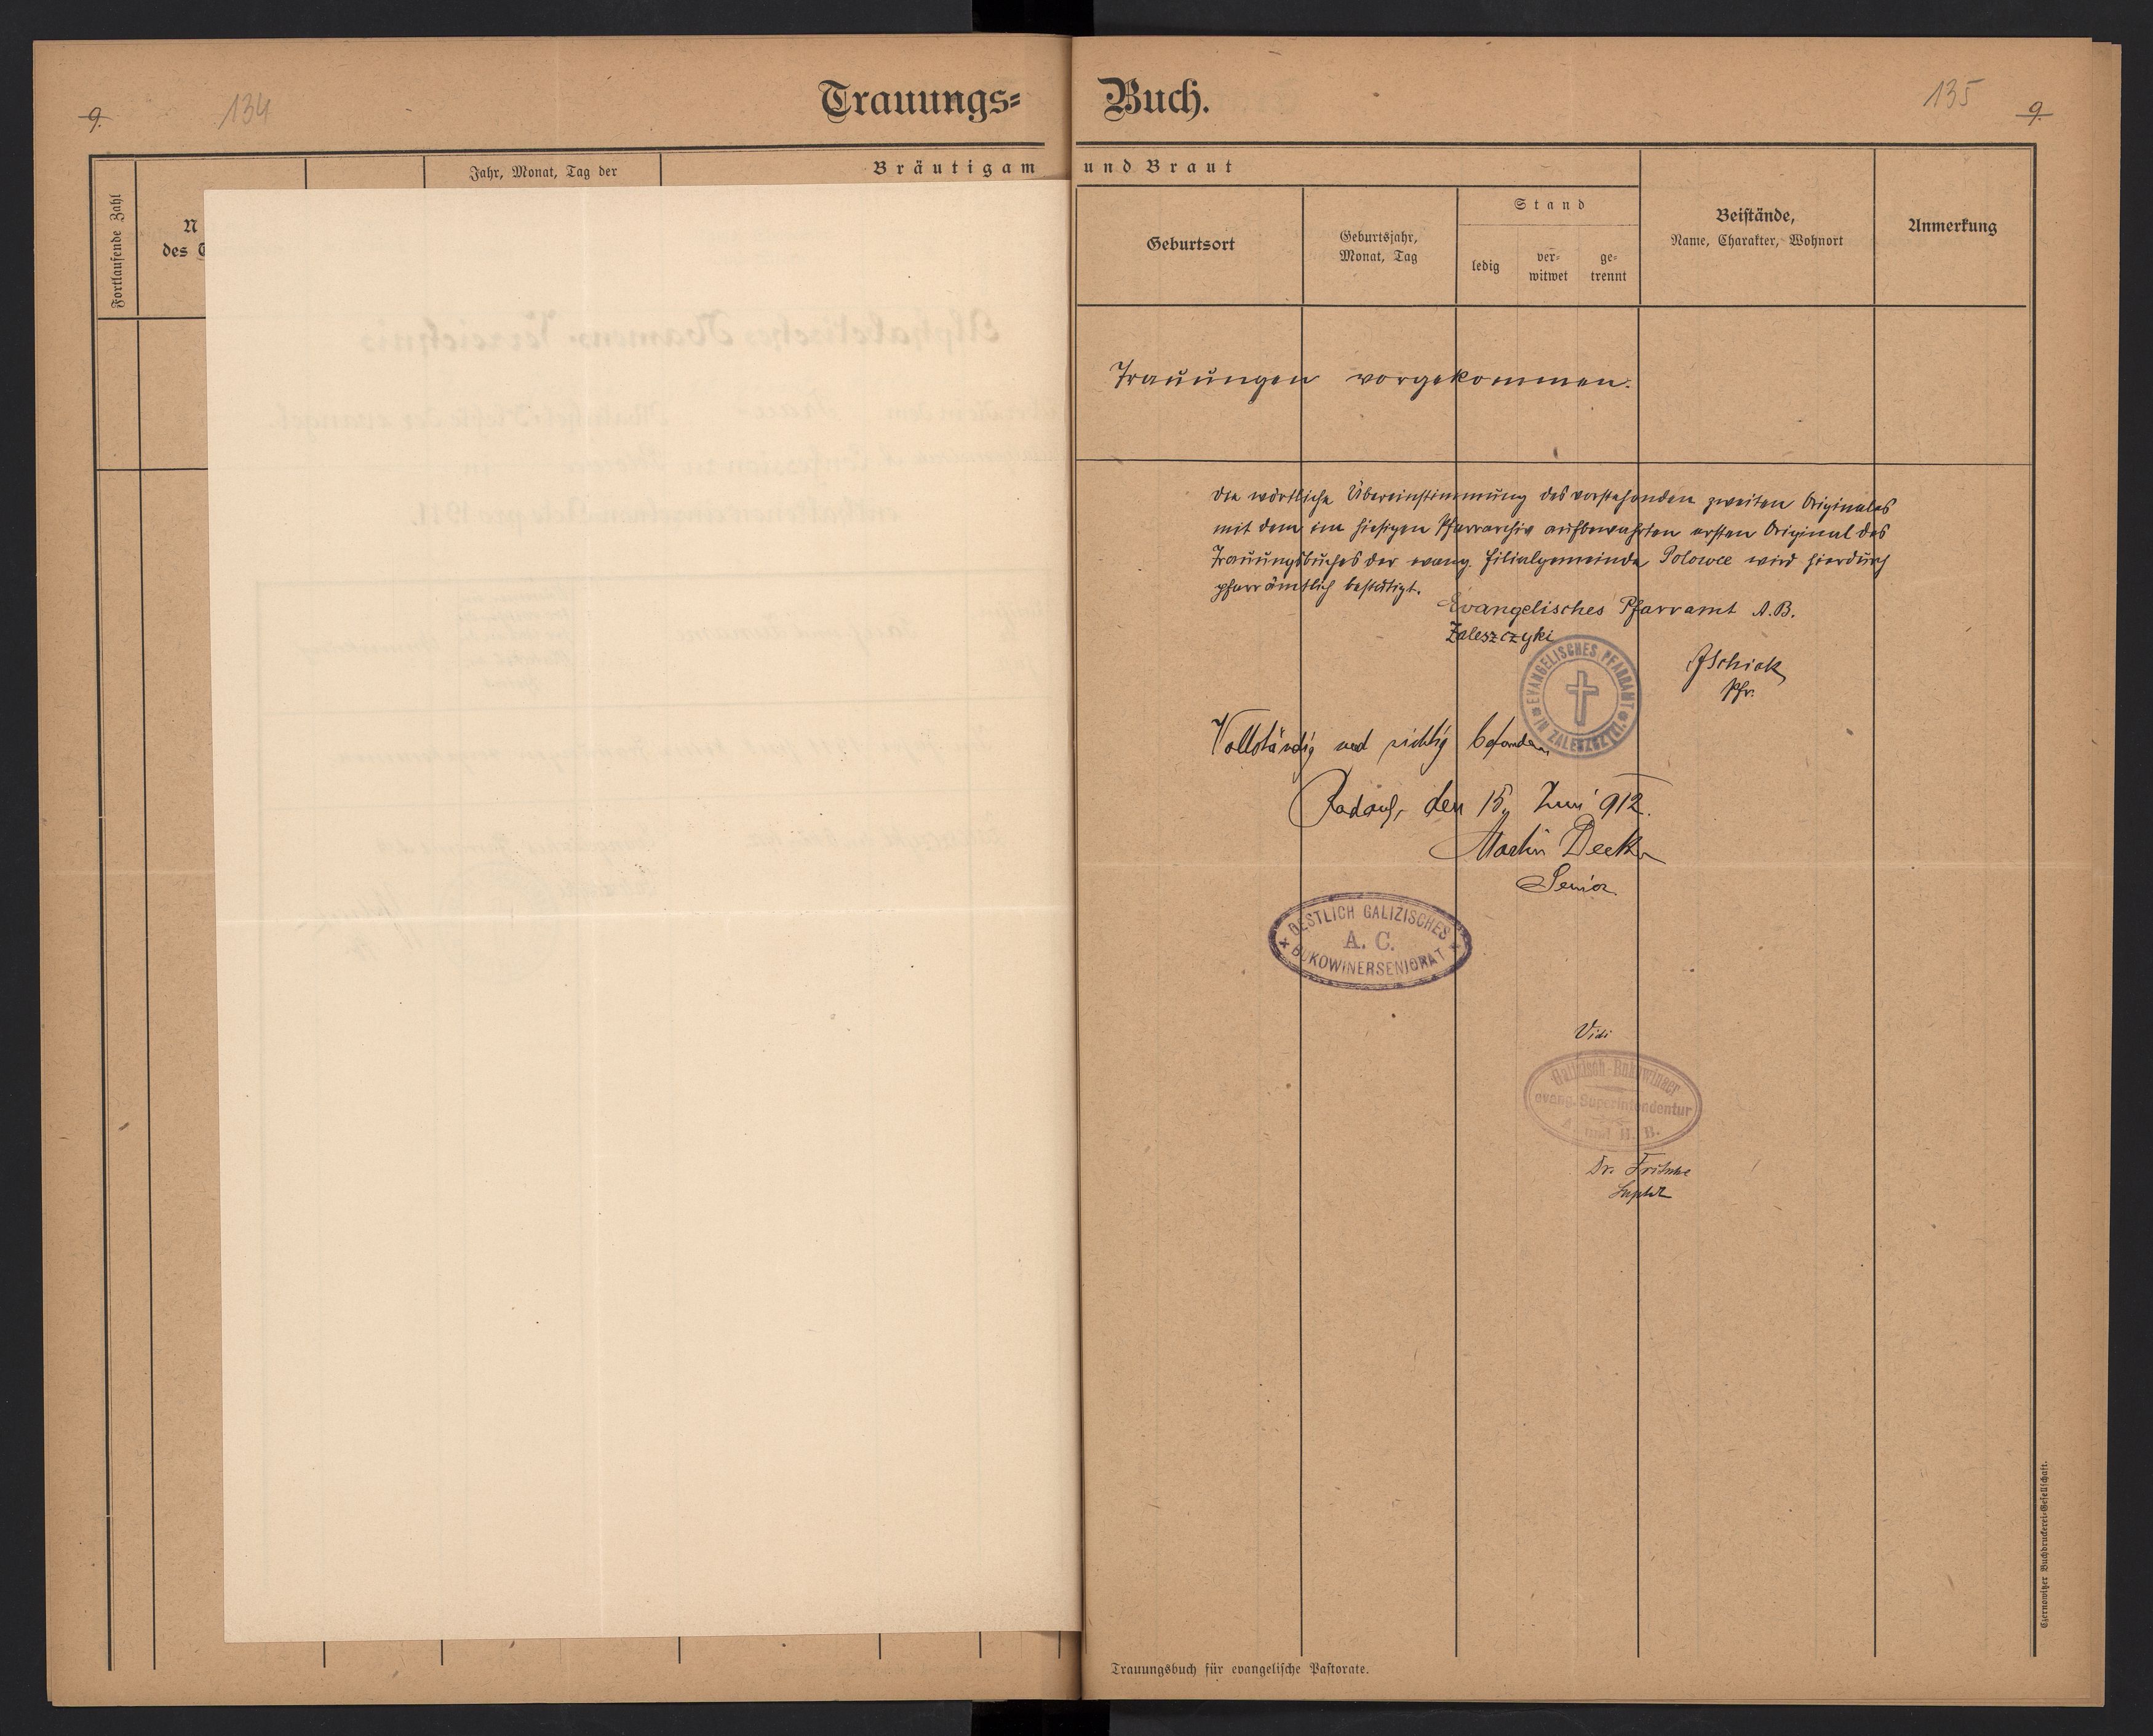 9.
134
Trauungs=
Buch.
135
9.
Fortlaufende Zahl
N
des
Jahr, Monat, Tag der
Bräutigam
und Braut
Geburtsort
Geburtsjahr,
Monat, Tag
Stand
ledig
ver-
witwet
ge-
trennt
Beistände,
Name, Charakter, Wohnort
Anmerkung
Trauungen vorgekommen.
Die wörtliche Übereinstimmung des vorstehenden zweiten Originales
mit dem im hiesigen Pfarrarchiv aufbewahrten ersten Original des
Trauungsbuches der evang. Filialgemeinde Polowce wird hierdurch
pfarrämtlich bestätigt.
Evangelisches Pfarramt A.B.
Zaleszczyki
EVANGELISCHES PFARRAMT
IN ZALESZCZYKI
JSchick
Pfr.
Vollständig und richtig befunden
Radautz, den 15. Juni 912.
Martin Decker
Senior
OESTLICH GALIZISCHES
A. C.
BUKOWINERSENIORAT
Vidi
Galizisch-Bukowinaer
evang. Superintendentur
A. und H. B.
Dr. Fritsche
Suptdt
Trauungsbuch für evangelische Pastorate.
Czernowitzer Buchdruckerei-Gesellschaft.